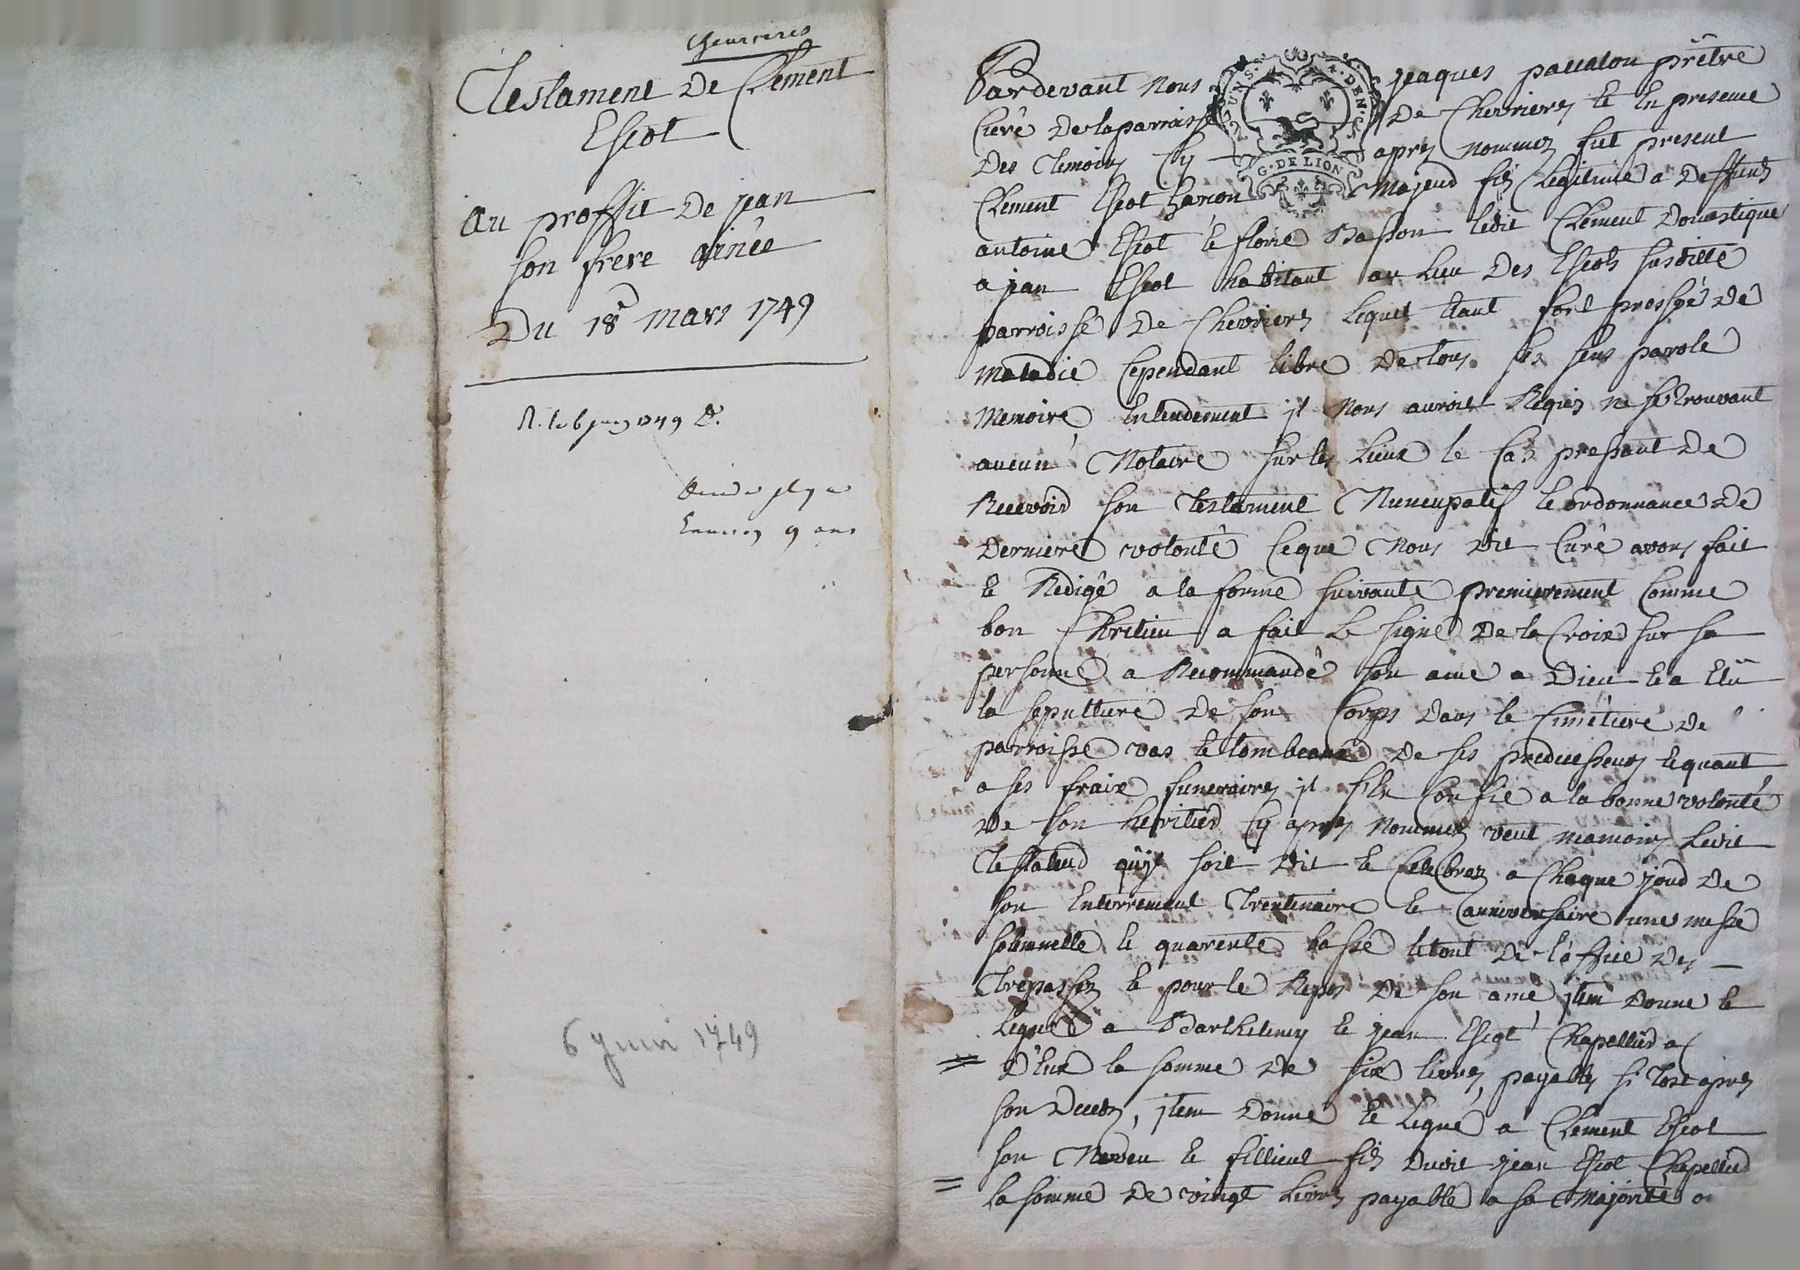 Chevrieres
Testament De Clement
Escot
au proffit De jean
son frere ainée
Du 18e mars 1749
R. le 6 juin 1749
9 ans
6 juin 1749
GEN. DE LION
Pardevant Nous jeaques paccalon prêtre
Curé De la parroisse De Chevrieres Et En presence
Des Temoins Cy apres nommez fut present
Clement Escot Garcon Majeur fils Legitime a Deffunts
antoine Escot Et florie Basson ledit Clement Domestique
a jean Escot habitant au Lieu Des Escots susditte
parroisse De Chevrieres Lequel Etant fort pressé De
maladie Cependant libre De tous ses sens parole
memoire Entendement jl Nous auroit Requis ne se trouvant
aucun Notaire sur les Lieux le Cas pressant De
Recevoir son Testament Nuncupatif Et ordonnance De
Derniere volonté Ce que Nous Dit Curé avons fait
Et Redigé a la forme suivante premierement Comme
bon Chretien a fait Le signe De la Croix sur sa
personne a Recommandé son ame a Dieu Et a Elü
la sepulture De son Corps Dans le Cimetiere De
parroisse vas Et tombeaux De ses predecesseurs Et quant
a ses fraix funeraires jl s'En Confie a la bonne volonté
De son heritier Cy apres Nommez veut neamoins Ledit
Testateur qu'jl soit Dit Et Celebrez a Chaque jour De
son Enterrement Trentenaire Et anniversaire une messe
solemnelle Et quarente basse le tout De l'office Des
Trepassez Et pour le Repos De son ame, jtem Donne Et
Legue a Barthelemy Et jean Escot Chapellier a
D'Eux la somme De six livres payables si tost apres
son Deces, jtem Donne Et Legue a Clement Escot
son Neveu Et fillieul fils Dudit jean Escot Chapellier
la somme De vingt Livres payable a sa Majorité